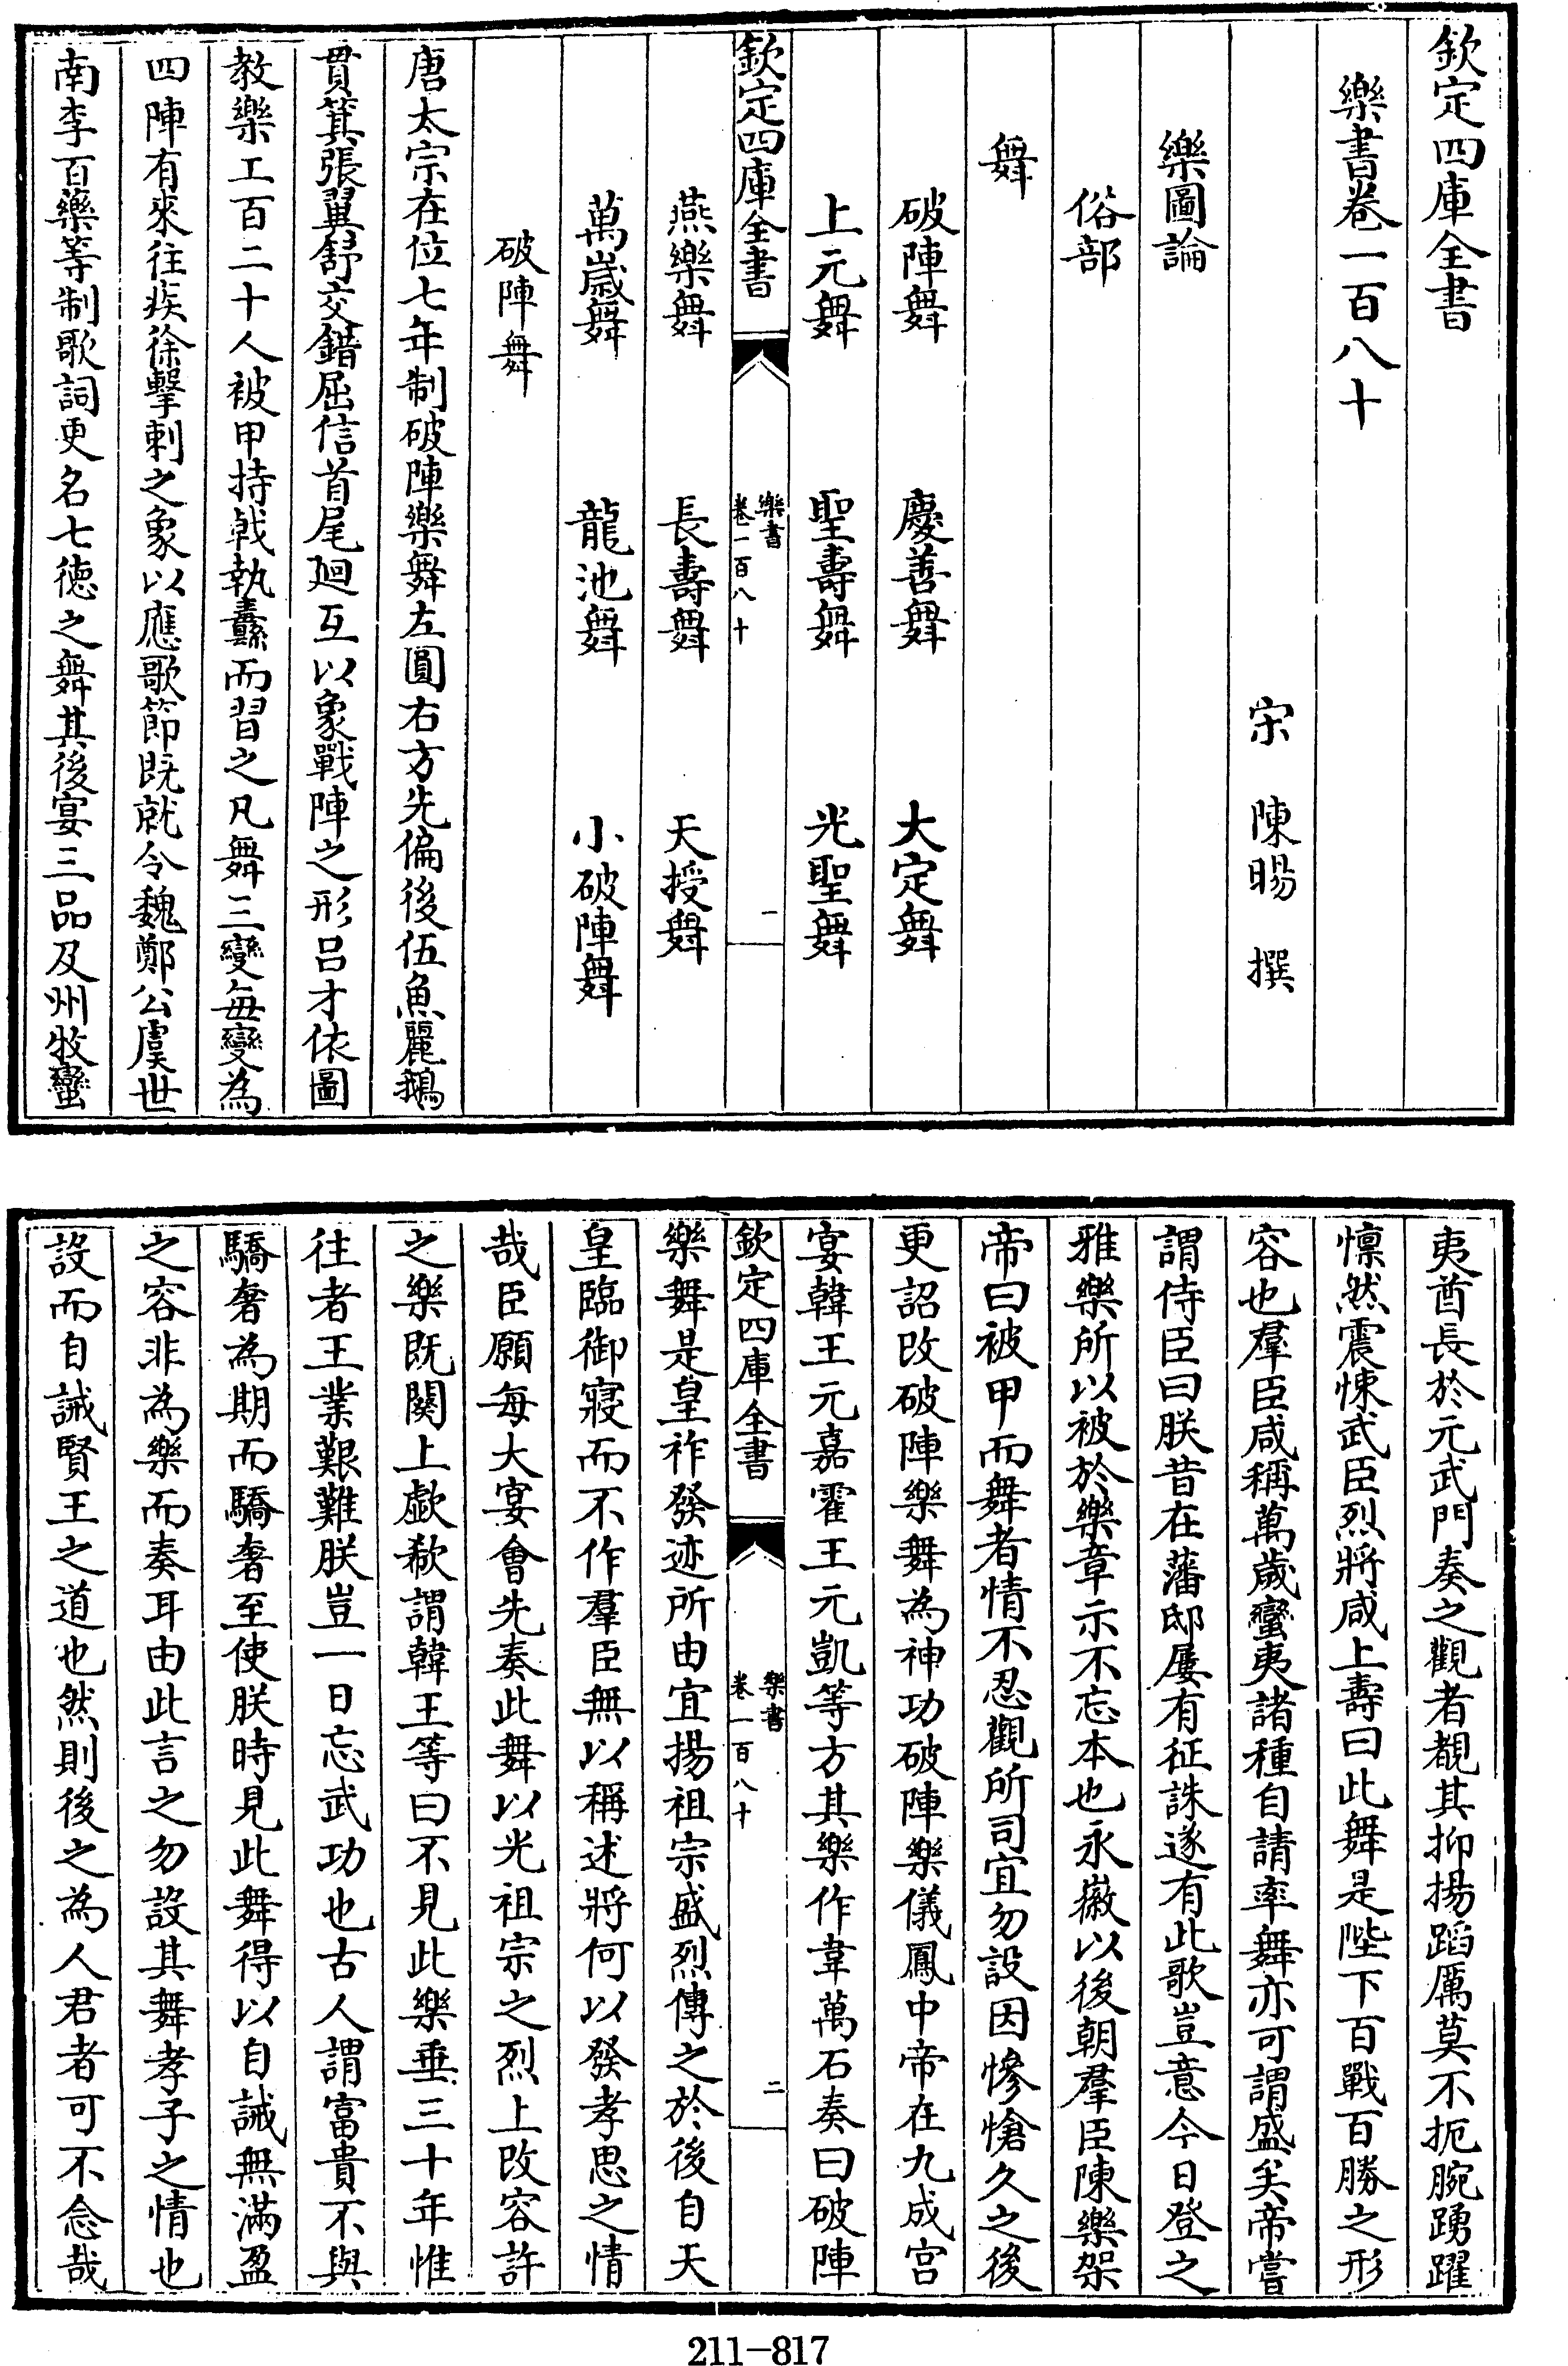 欽定四庫全書
樂書卷一百八十
宋　陳暘　撰
樂圖論
俗部
舞
破陣舞　慶善舞　大定舞
上元舞　聖壽舞　光聖舞
欽定四庫全書　樂書卷一百八十　一
燕樂舞　長壽舞　天授舞
萬歲舞　龍池舞　小破陣舞
破陣舞
唐太宗在位七年制破陣樂舞左圓右方先偏後伍魚麗鵝
貫箕張翼舒交錯屈信首尾廻互以象戰陣之形呂才依圖
教樂工百二十人被甲持戟執纛而習之凡舞三變每變為
四陣有來往疾徐擊刺之象以應歌節既就令魏鄭公虞世
南李百藥等制歌詞更名七徳之舞其後宴三品及州牧蠻
夷酋長於元武門奏之觀者覩其抑揚蹈厲莫不扼腕踴躍
懍然震悚武臣烈將咸上壽曰此舞是陛下百戰百勝之形
容也羣臣咸稱萬歲蠻夷諸種自請率舞亦可謂盛矣帝嘗
謂侍臣曰朕昔在藩邸屢有征誅遂有此歌豈意今日登之
雅樂所以被於樂章示不忘本也永徽以後朝羣臣陳樂架
帝曰被甲而舞者情不忍觀所司宜勿設因慘愴久之後
更詔改破陣樂舞為神功破陣樂儀鳳中帝在九成宮
宴韓王元嘉霍王元凱等方其樂作韋萬石奏曰破陣
欽定四庫全書　樂書卷一百八十　二
樂舞是皇祚發迹所由宜揚祖宗盛烈傳之於後自天
皇臨御寢而不作羣臣無以稱述將何以發孝思之情
哉臣願每大宴會先奏此舞以光祖宗之烈上改容許
之樂既闋上歔欷謂韓王等曰不見此樂垂三十年惟
往者王業艱難朕豈一日忘武功也古人謂富貴不與
驕奢為期而驕奢至使朕時見此舞得以自誡無滿盈
之容非為樂而奏耳由此言之勿設其舞孝子之情也
設而自誡賢王之道也然則後之為人君者可不念哉
211-817